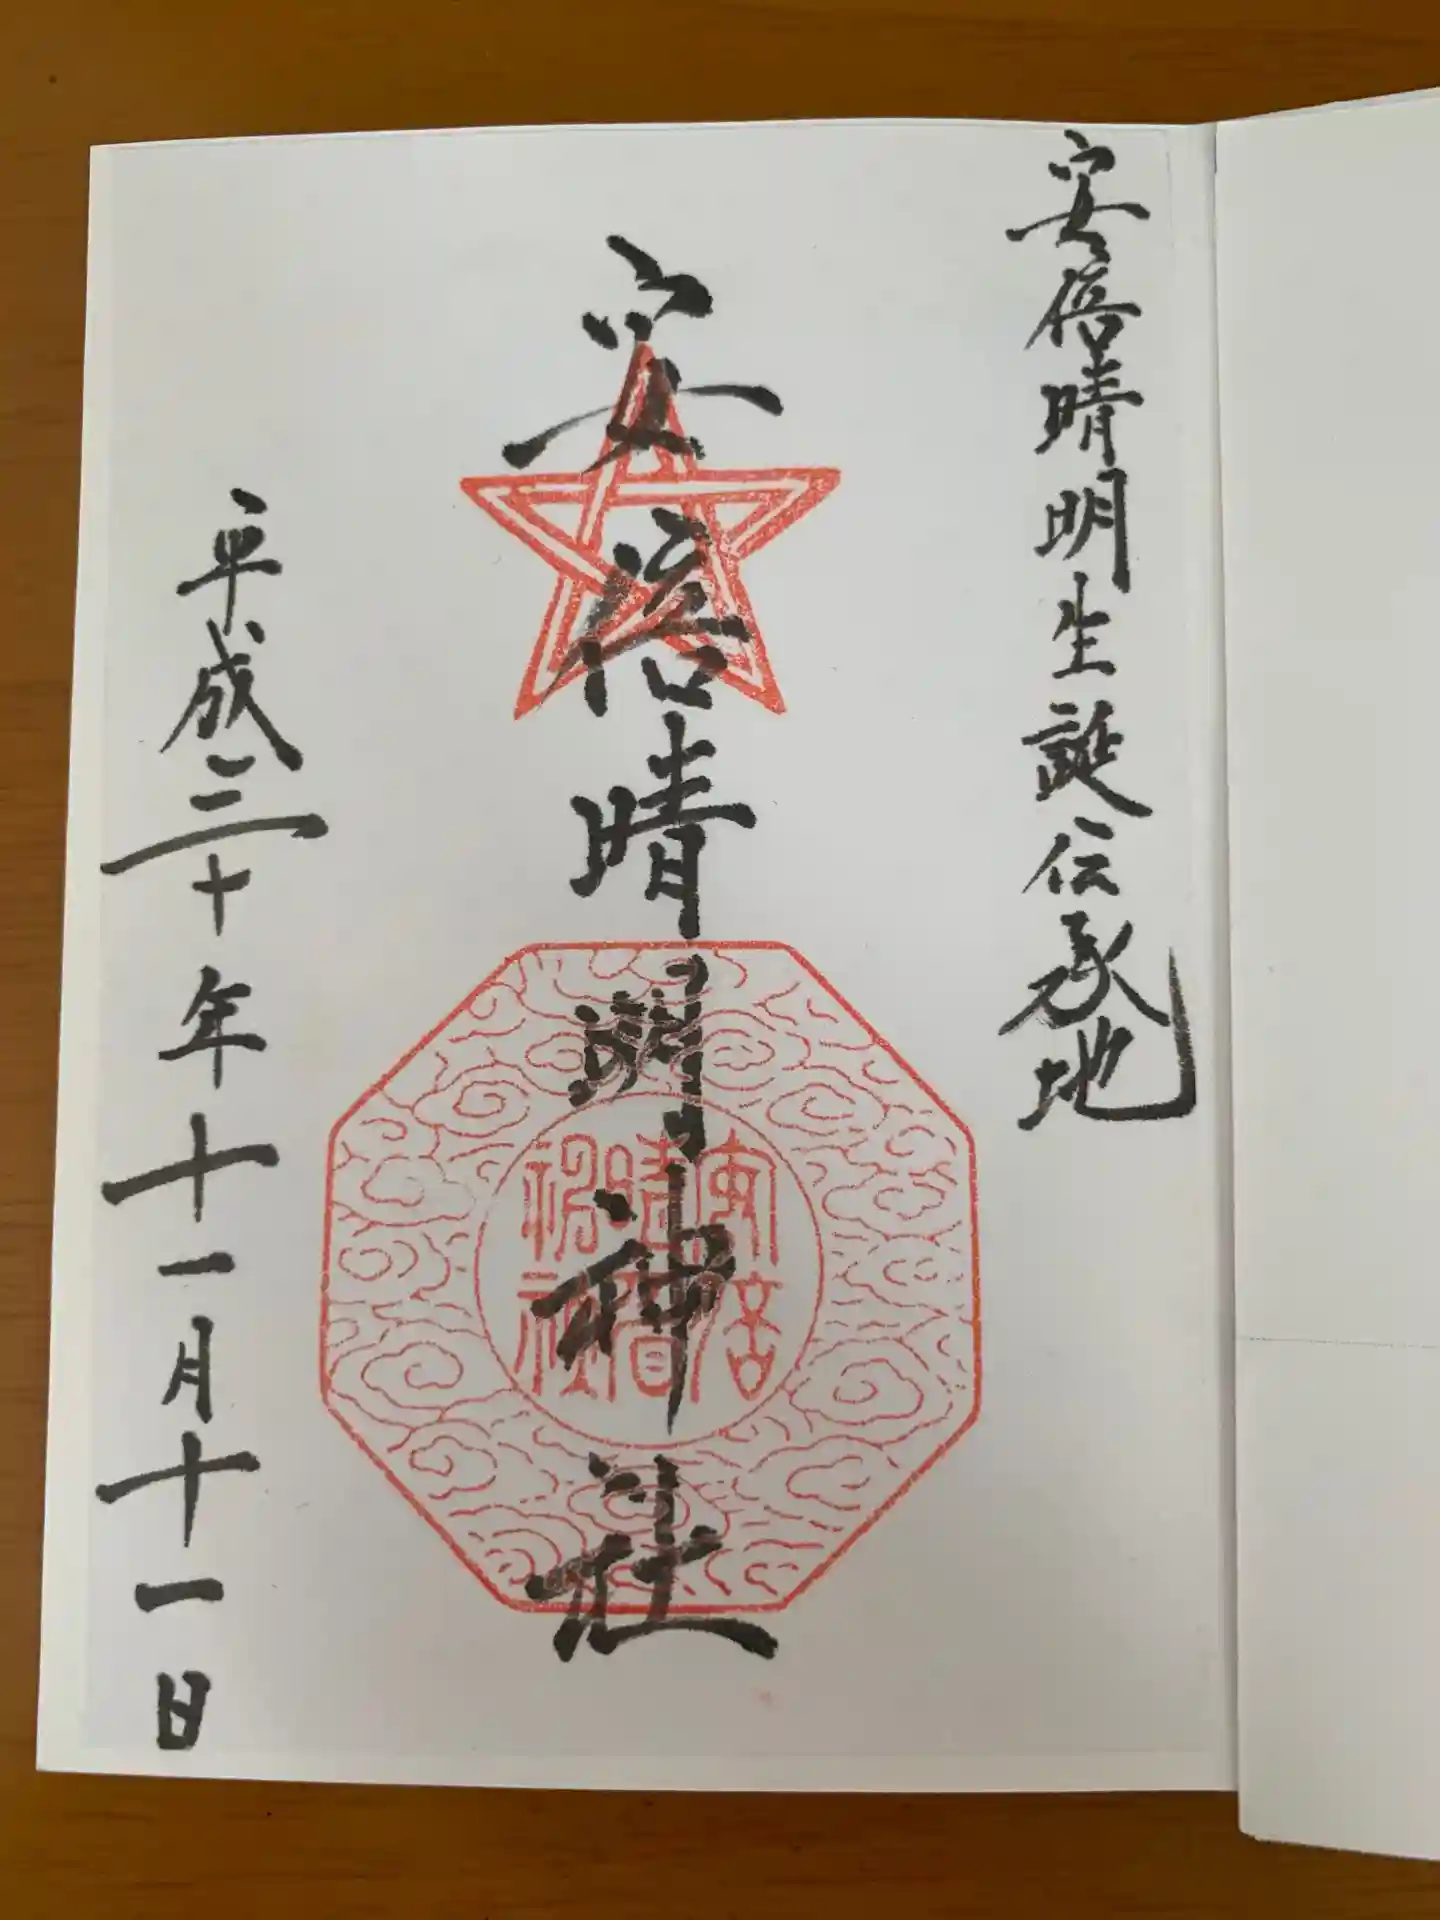 安倍晴明生誕伝承地
安倍晴明神社
平成三十年十一月十一日